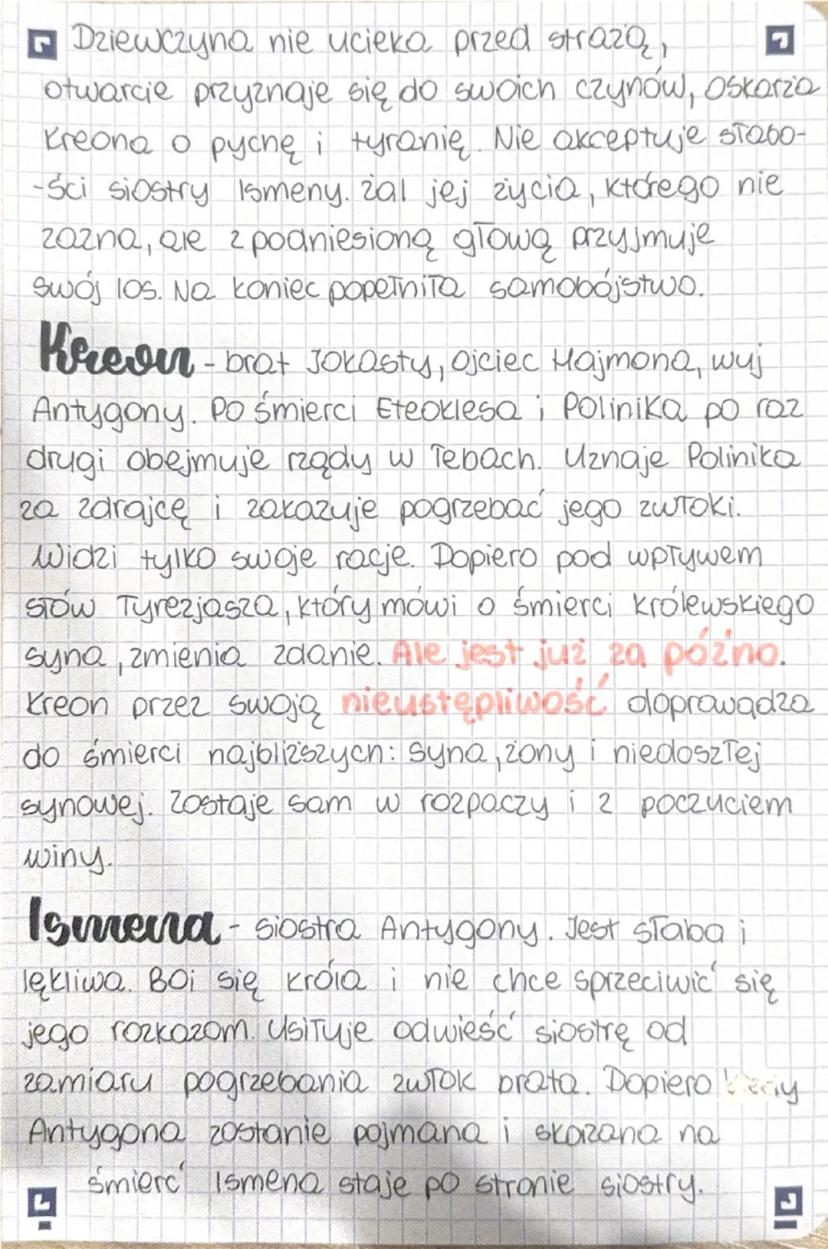 Dziewczyna nie ucieka przed strażą,
otwarcie przyznaje się do swoich czynów, oskarża
Kreona o pychę i tyranię. Nie akceptuje słabo-
-ści siostry Ismeny. Żal jej życia, którego nie
zazna, ale z podniesioną głową przyjmuje
swój los. Na koniec popełniła samobójstwo.
Kreon - brat Jokasty, ojciec Hajmona, wuj
Antygony. Po śmierci Eteoklesa i Polinika po raz
drugi obejmuje rządy w Tebach. Uznaje Polinika
za zdrajcę i zakazuje pogrzebać jego zwłoki.
Widzi tylko swoje racje. Dopiero pod wpływem
słów Tyrezjasza, który mówi o śmierci królewskiego
syna, zmienia zdanie. Ale jest już za późno.
Kreon przez swoją nieustępliwość doprowadza
do śmierci najbliższych: syna, żony i niedoszłej
synowej. Zostaje sam w rozpaczy i z poczuciem
winy.
Ismena - siostra Antygony. Jest słaba i
lękliwa. Boi się króla i nie chce sprzeciwić się
jego rozkazom. Usiłuje odwieść siostrę od
zamiaru pogrzebania zwłok brata. Dopiero
Antygona zostanie pojmana i skazana na
śmierć Ismena staje po stronie siostry.